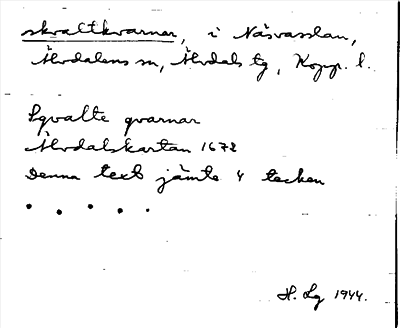 skvaltkvarnar, i Näsvasslan,
Älvdalens sn, Älvdals tg, Kopp. l.
Sqvalte qvarnar
Älvdalskartan 1672
Denna text jämte 4 tecken
. . . . .
H. Lg 1944.